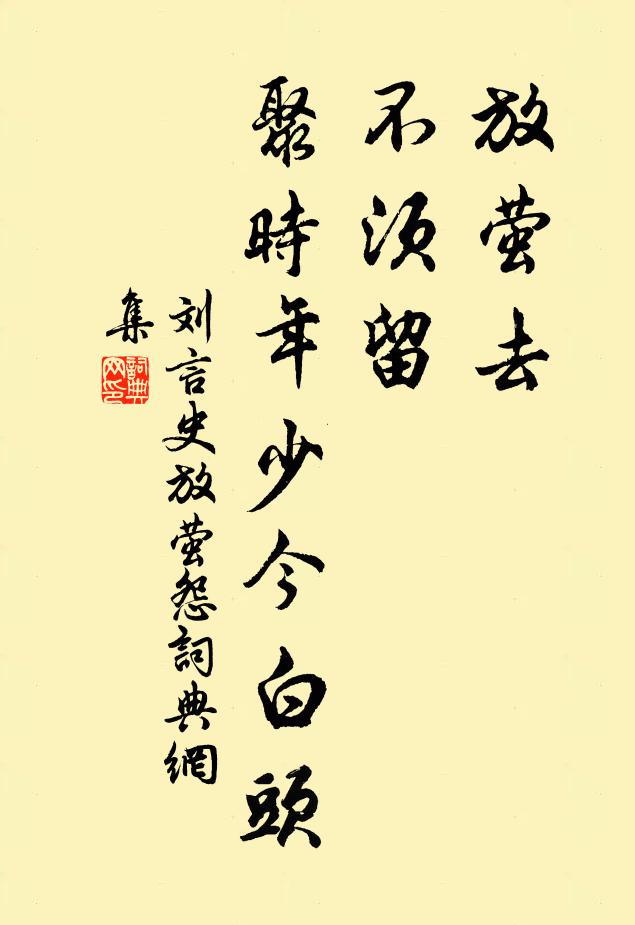 放萤去
不须留
聚時年少今白頭
刘言史放萤怨詞典網
集
詞典网印